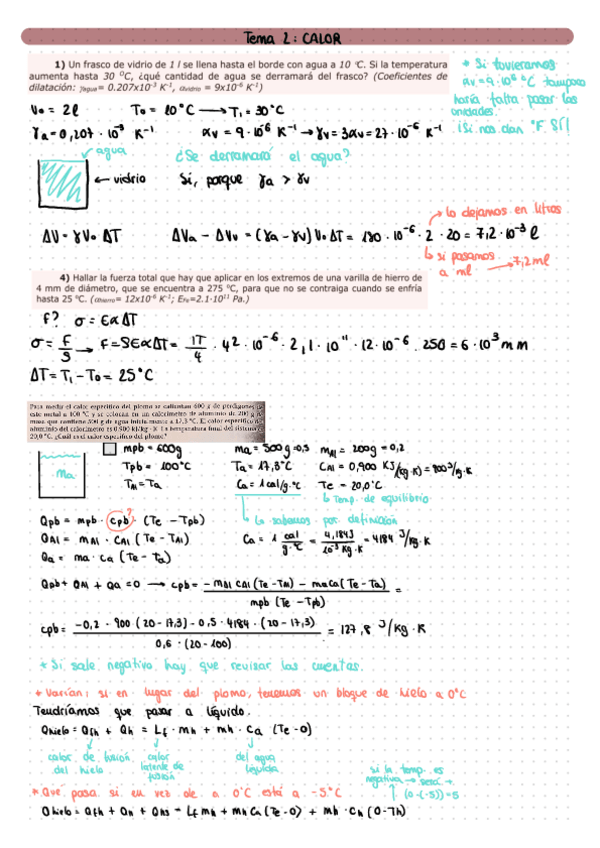 Tema 2: CALOR
1) Un frasco de vidrio de 1 l se llena hasta el borde con agua a 10 °C. Si la temperatura
aumenta hasta 30 °C, ¿qué cantidad de agua se derramará del frasco? (Coeficientes de
dilatación: γagua= 0.207x10⁻³ K⁻¹, αvidrio = 9x10⁻⁶ K⁻¹)
* Si tuvieramos
αv = 9·10⁻⁶ °C tampoco
haría falta pasar las
unidades.
¡Si nos dan °F SÍ!
V₀ = 2l T₀ = 10°C → T₁ = 30°C
γa = 0,207 · 10⁻³ K⁻¹ αv = 9 · 10⁻⁶ K⁻¹ → γv = 3αv = 27 · 10⁻⁶ K⁻¹
agua
← vidrio
¿Se derramará el agua?
Sí, porque γa > γv
→ lo dejamos en litros
ΔV = γV₀ ΔT ΔVa − ΔVv = (γa − γv) V₀ ΔT = 180 · 10⁻⁶ · 2 · 20 = 7,2 · 10⁻³ l
↳ si pasamos → 7,2 ml
a ml
4) Hallar la fuerza total que hay que aplicar en los extremos de una varilla de hierro de
4 mm de diámetro, que se encuentra a 275 °C, para que no se contraiga cuando se enfría
hasta 25 °C. (αhierro= 12x10⁻⁶ K⁻¹; EFe=2.1·10¹¹ Pa.)
F? σ = EαΔT
σ = F/S → F = SEαΔT = π/4 · 4² · 10⁻⁶ · 2,1 · 10¹¹ · 12 · 10⁻⁶ · 250 = 6 · 10³ m m
ΔT = T₁ − T₀ = 25°C
Para medir el calor específico del plomo se calientan 600 g de perdigones de
este metal a 100 °C y se colocan en un calorímetro de aluminio de 200 g de
masa que contiene 500 g de agua inicialmente a 17,3 °C. El calor específico del
aluminio del calorímetro es 0.900 kJ/kg · K. La temperatura final del sistema es
20,0 °C. ¿Cuál es el calor específico del plomo?
ma
mpb = 600g ma = 500g = 0,5 mAl = 200g = 0,2
Tpb = 100°C Ta = 17,3°C CAl = 0,900 KJ/(kg·K) = 900 J/kg·K
TAl = Ta Ca = 1 cal/g·°C Te = 20,0°C
↳ Temp. de equilibrio
Qpb = mpb · cpb? · (Te − Tpb) ↳ Lo sabemos por definición
QAl = mAl · CAl (Te − TAl) Ca = 1 cal/g·°C = 4,184J/10⁻³ Kg·K = 4184 J/Kg·K
Qa = ma · ca (Te − Ta)
Qpb + QAl + Qa = 0 → cpb = −mAl CAl (Te − TAl) − maCa(Te − Ta) / mpb (Te − Tpb) =
cpb = −0,2 · 900 (20 − 17,3) − 0,5 · 4184 · (20 − 17,3) / 0,6 · (20 − 100) = 127,8 J/Kg·K
* Si sale negativo hay que revisar las cuentas.
* Varían: si en lugar del plomo, tenemos un bloque de hielo a 0°C
Tendríamos que pasar a líquido.
Qhielo = Qfh + Qh = Lf · mh + mh · Ca (Te − 0)
calor de fusión
del hielo
calor
latente de
fusión
del agua
líquida
si la temp. es
negativa → será →
(0−(−5)) = 5
* Qué pasa si en vez de a 0°C está a −5°C
Qhielo = Qfh + Qh + Qhs = Lf mh + mh Ca (Te − 0) + mh · Ch (0 − Th)